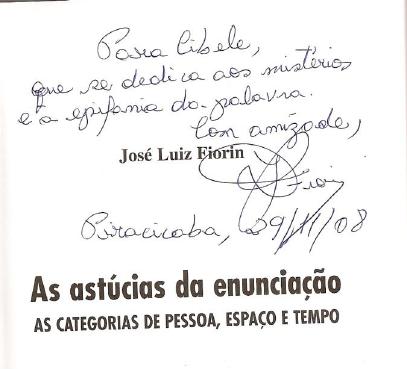 Para Cibele,
que se dedica aos mistérios
e à epifania da palavra.
Com amizade,
José Luiz Fiorin
Fiorin
Piracicaba, 29/11/08
As astúcias da enunciação
AS CATEGORIAS DE PESSOA, ESPAÇO E TEMPO